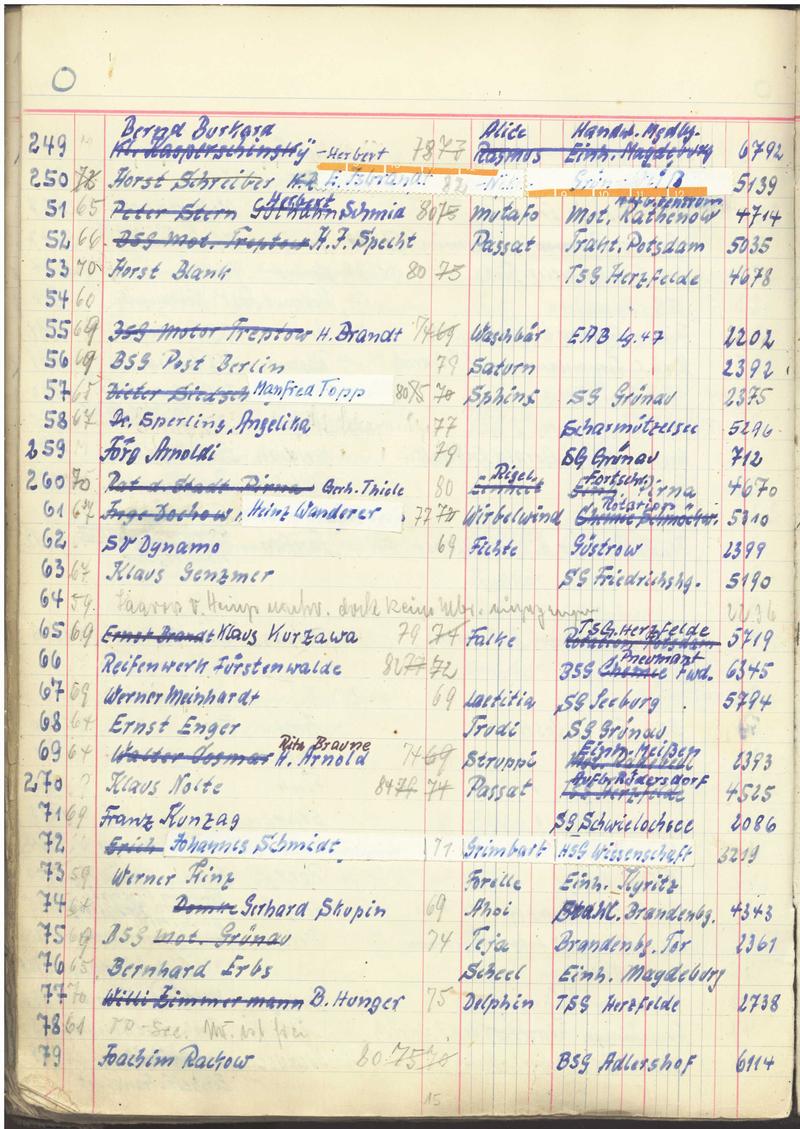 O
Bernd Burkard Alice Handw. Mgdbg.
249 Kasperschinsky - Herbert 78 77 Rasmus Einh. Magdeburg 6792
250 72 Horst Schreiber 82 5139
Herbert
51 65 Peter Stern Schmid 80 75 Mutafo Mot. Rathenow 4714
52 66 BSG Mot. Treptow H.J. Specht Passat Trakt. Potsdam 5035
53 70 Horst Blank 80 75 TSG Herzfelde 4678
54 60
55 69 BSG Motor Treptow H. Brandt 74 69 Waschbär EAB Lg. 47 2202
56 69 BSG Post Berlin 79 Saturn 2392
57 65 Dieter Manfred Topp 80 75 70 Sphinx SG Grünau 2375
58 67 Dr. Sperling, Angelika 77 Scharmützelsee 5296
259 Jörg Arnoldi 79 SG Grünau 712
Rigel Fortschr.
260 70 Rat d. Stadt Pirna Gerh. Thiele 80 Einheit Pirna 4670
Rotation
61 67 Inge Dochow, Heinz Wanderer 77 72 Wirbelwind Chemie Schmöckw. 5310
62 SV Dynamo 69 Fichte Güstrow 2399
63 67 Klaus Genzmer SG Friedrichshg. 5190
64 59 2236
TSG Herzfelde
65 69 Ernst Brandt Klaus Kurzawa 79 74 Falke Rotation Potsdam 5719
Pneumant
66 Reifenwerk Fürstenwalde 82 77 72 BSG Chemie Fwd. 6345
67 69 Werner Meinhardt 69 Laetitia SG Seeburg 5794
68 64 Ernst Enger Trudi SG Grünau
Rita Braune Einh. Meißen
69 64 Walter Cosmar H. Arnold 74 69 Struppi 2393
Aufb. Rüdersdorf
270 ? Klaus Nolte 84 79 74 Passat SG Herzfelde 4525
71 69 Franz Kunzag SG Schwielochsee 2086
72 Erich Johannes Schmidt 71 Grimbart HSG Wissenschaft 3219
73 59 Werner Hinz Forelle Einh. Kyritz
74 64 Domke Gerhard Skupin 69 Ahoi Stahl. Brandenbg. 4343
75 69 BSG Mot. Grünau 74 Teja Brandenbg. Tor 2361
76 65 Bernhard Erbs Scheel Einh. Magdeburg
77 70 Willi Zimmermann B. Hunger 75 Delphin TSG Herzfelde 2738
78 61 Nr. ist frei
79 Joachim Rackow 80 75 70 BSG Adlershof 6114
15